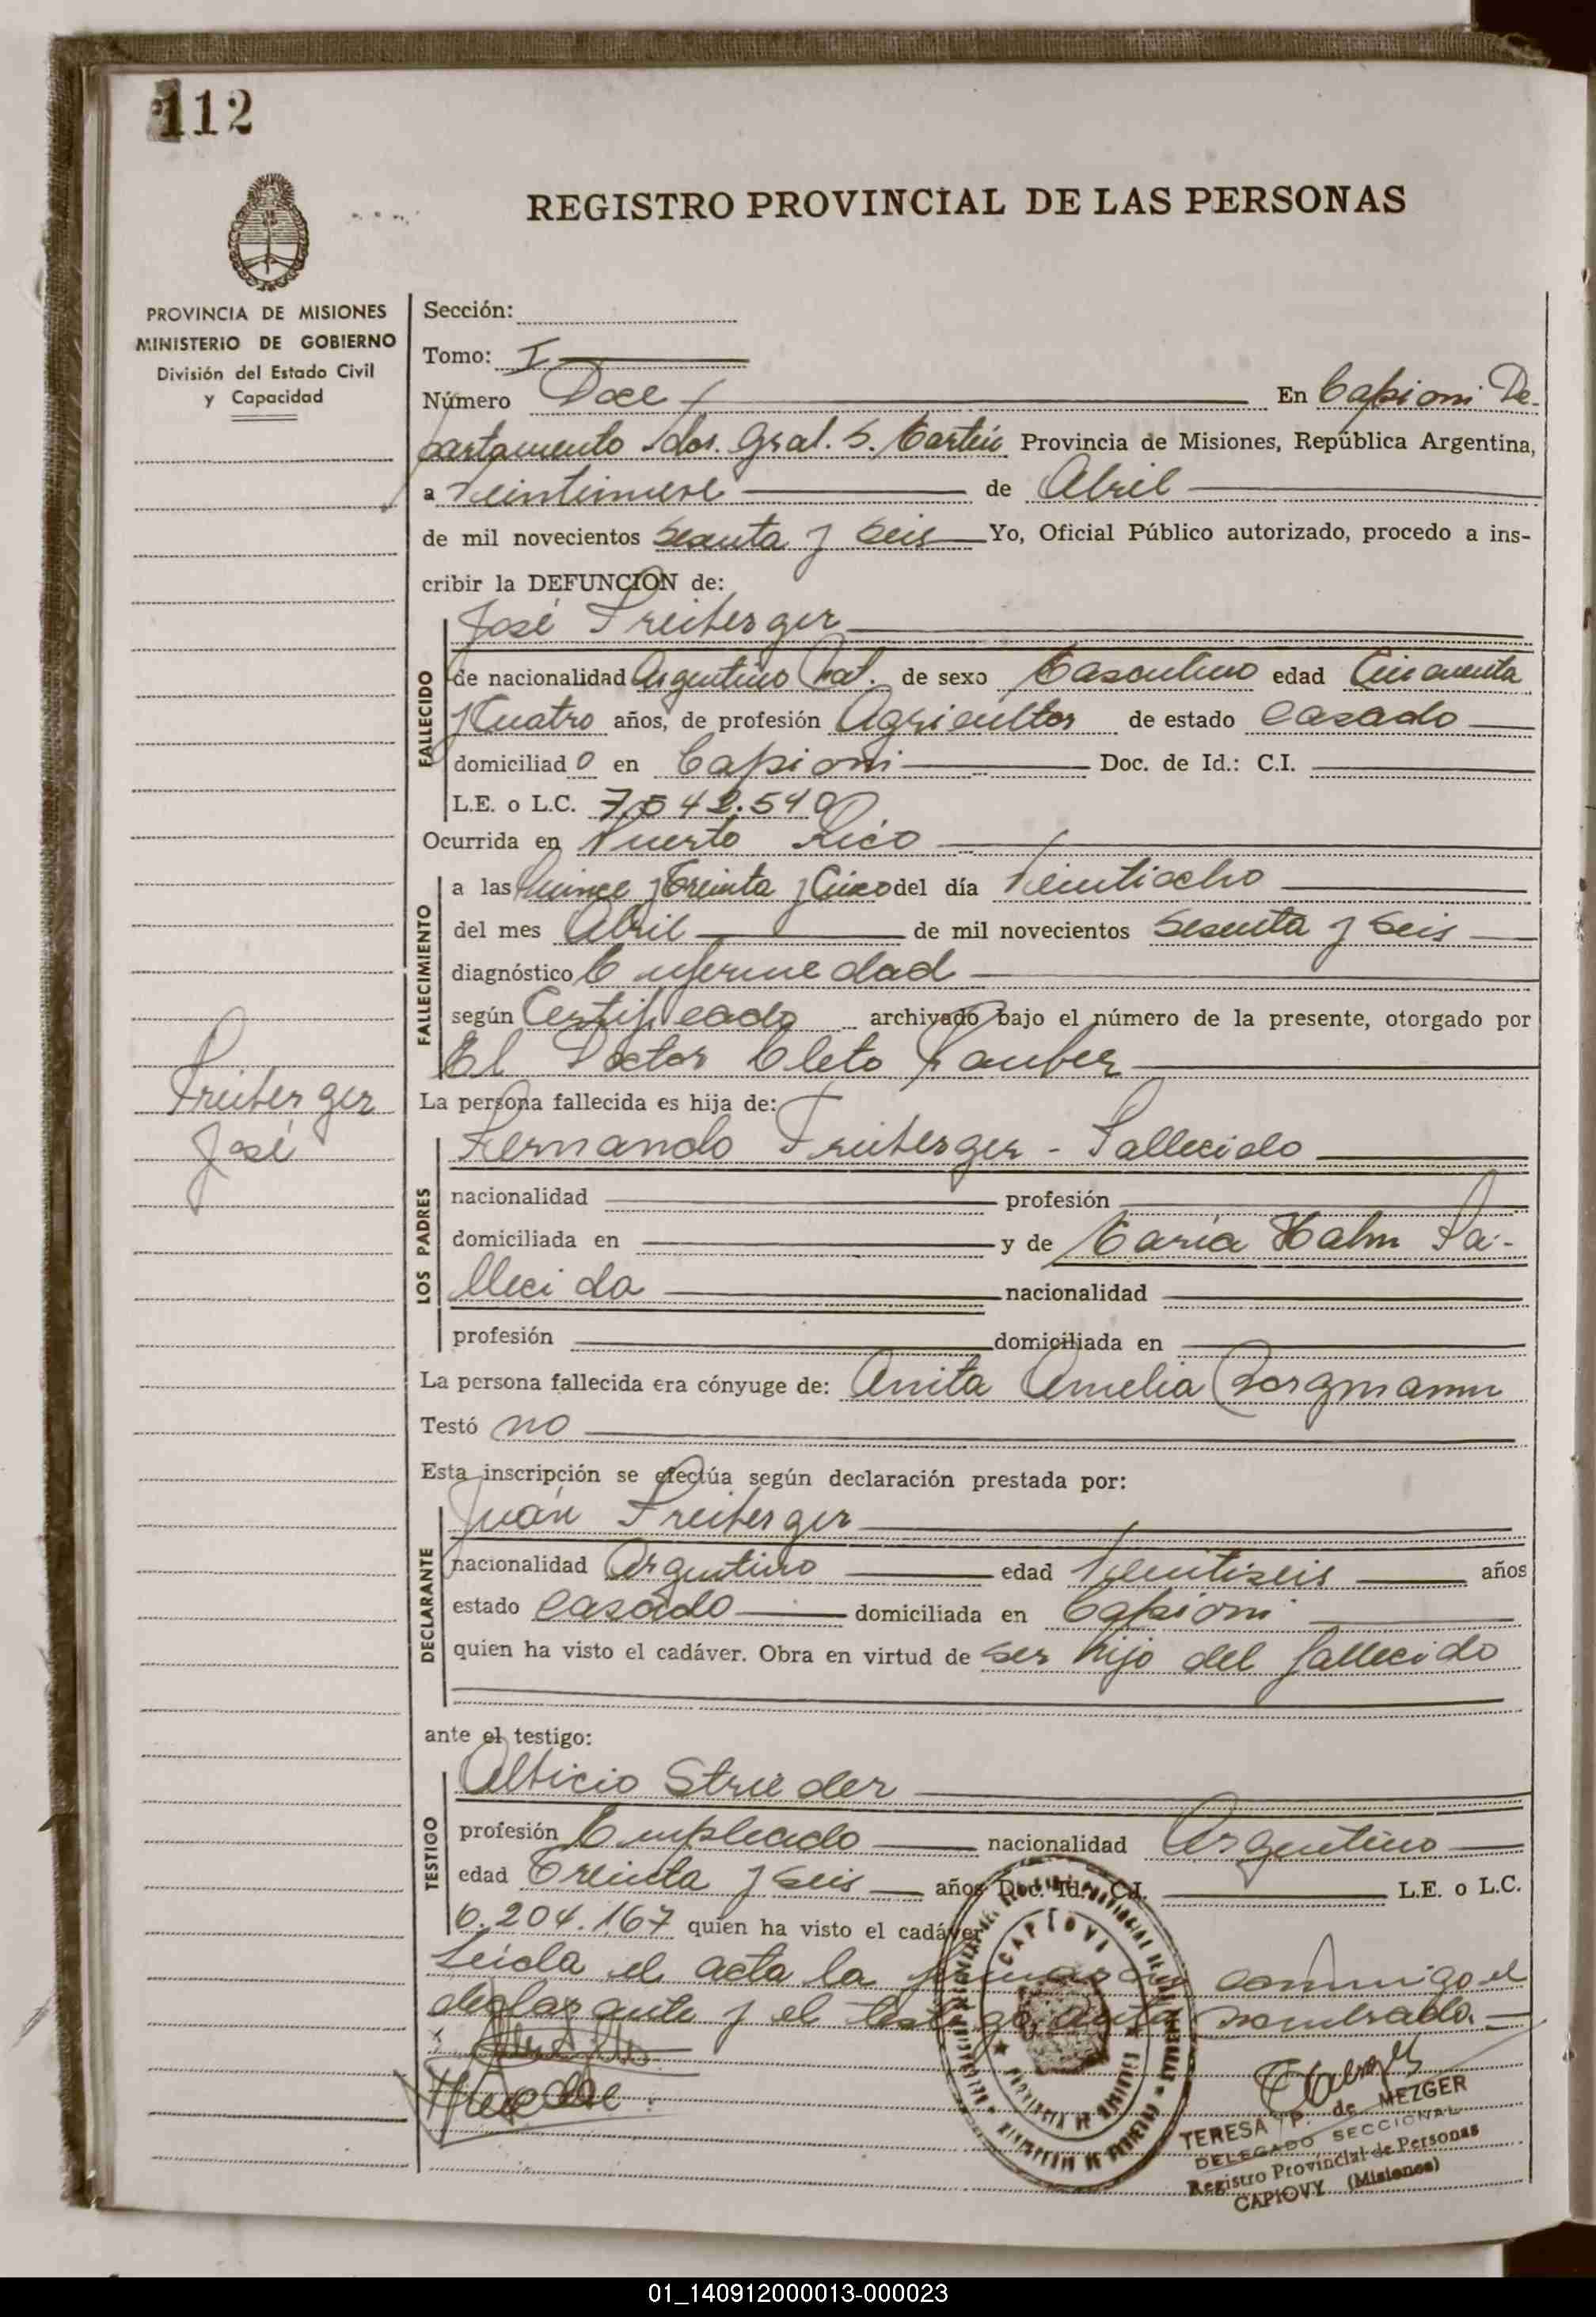 112
REGISTRO PROVINCIAL DE LAS PERSONAS
PROVINCIA DE MISIONES
MINISTERIO DE GOBIERNO
División del Estado Civil
y Capacidad
Sección:
Tomo: I
Número Doce En Capioví De-
partamento Ldor. Gral. S. Martín Provincia de Misiones, República Argentina,
a veintinueve de Abril
de mil novecientos sesenta y seis Yo, Oficial Público autorizado, procedo a ins-
cribir la DEFUNCION de:
José Freiberger
FALLECIDO
de nacionalidad Argentino Nat. de sexo Masculino edad Cincuenta
y Cuatro años, de profesión Agricultor de estado casado
domiciliado en Capioví Doc. de Id.: C.I.
L.E. o L.C. 7.542.540
Ocurrida en Puerto Rico
FALLECIMIENTO
a las Quince y Treinta y Cinco del día Veintiocho
del mes Abril de mil novecientos Sesenta y Seis
diagnóstico Enfermedad
según Certificado archivado bajo el número de la presente, otorgado por
El Doctor Cleto Rauber
La persona fallecida es hija de:
Freiberger
José
LOS PADRES
Fernando Freiberger - Fallecido
nacionalidad profesión
domiciliada en y de María Hahn Fa-
llecida nacionalidad
profesión domiciliada en
La persona fallecida era cónyuge de: Anita Amelia Borgmann
Testó no
Esta inscripción se efectúa según declaración prestada por:
DECLARANTE
Juán Freiberger
nacionalidad Argentino edad Veintiseis años
estado casado domiciliada en Capioví
quien ha visto el cadáver. Obra en virtud de ser hijo del fallecido
ante el testigo:
TESTIGO
Albicio Strieder
profesión Empleado nacionalidad Argentino
edad Treinta y Seis años Doc. Id. C.I. L.E. o L.C.
6.204.167 quien ha visto el cadáver
Leida el acta la firmaron conmigo el
declarante y el testigo antes nombrado.
CAPIOVI
PROVINCIA DE MISIONES
TERESA P. de MEZGER
DELEGADO SECCIONAL
Registro Provincial de Personas
CAPIOVY (Misiones)
01_140912000013-000023